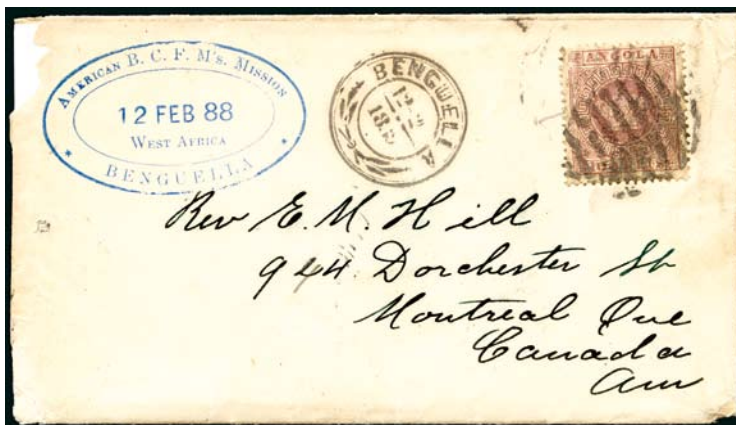 AMERICAN B. C. F. M's. MISSION
12 FEB 88
WEST AFRICA
BENGUELLA
BENGUELLA
ANGOLA
Rev E. M. Hill
944 Dorchester St
Montreal Que
Canada
Am